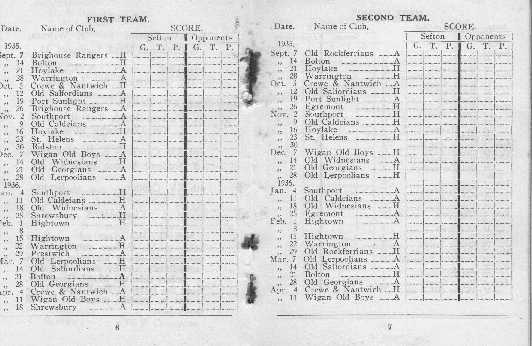 FIRST TEAM.
Date. Name of Club. SCORE.
Sefton Opponents
G. T. P. G. T. P.
1935.
Sept. 7 Brighouse Rangers H
,, 14 Bolton H
,, 21 Hoylake A
,, 28 Warrington A
Oct. 5 Crewe & Nantwich H
,, 12 Old Salfordians A
,, 19 Port Sunlight H
,, 26 Brighouse Rangers A
Nov. 2 Southport A
,, 9 Old Caldeians A
,, 16 Hoylake H
,, 23 St. Helens A
,, 30 H
Dec. 7 Wigan Old Boys A
,, 14 Old Widnesians H
,, 21 Old Georgians A
,, 28 Old Lerpoolians A
1936.
Jan. 4 Southport H
,, 11 Old Caldeians H
,, 18 Old Widnesians A
,, 25 Shrewsbury H
Feb. 1 Hightown H
,, 8
,, 15 Hightown A
,, 22 Warrington H
,, 29 Prestwich A
Mar. 7 Old Lerpoolians H
,, 14 Old Salfordians H
,, 21 Bolton A
,, 28 Old Georgians H
Apr. 4 Crewe & Nantwich A
,, 11 Wigan Old Boys H
,, 18 Shrewsbury A
6
SECOND TEAM.
Date. Name of Club. SCORE.
Sefton Opponents
G. T. P. G. T. P.
1935.
Sept. 7 Old Rockferrians A
,, 14 Bolton A
,, 21 Hoylake H
,, 28 Warrington H
Oct. 5 Crewe & Nantwich A
,, 12 Old Salfordians H
,, 19 Port Sunlight A
,, 26 Egremont
Nov. 2 Southport H
,, 9 Old Caldeians H
,, 16 Hoylake A
,, 23 St. Helens
,, 30
Dec. 7 Wigan Old Boys H
,, 14 Old Widnesians A
,, 21 Old Georgians
,, 28 Old Lerpoolians H
1936.
Jan. 4 Southport A
,, 11 Old Caldeians A
,, 18 Old Widnesians H
,, 25 Egremont A
Feb. 1 Hightown A
,, 8
,, 15 Hightown H
,, 22 Warrington A
,, 29 Old Rockferrians H
Mar. 7 Old Lerpoolians A
,, 14 Old Salfordians A
,, 21 Bolton H
,, 28 Old Georgians A
Apr. 4 Crewe & Nantwich H
,, 11 Wigan Old Boys A
7